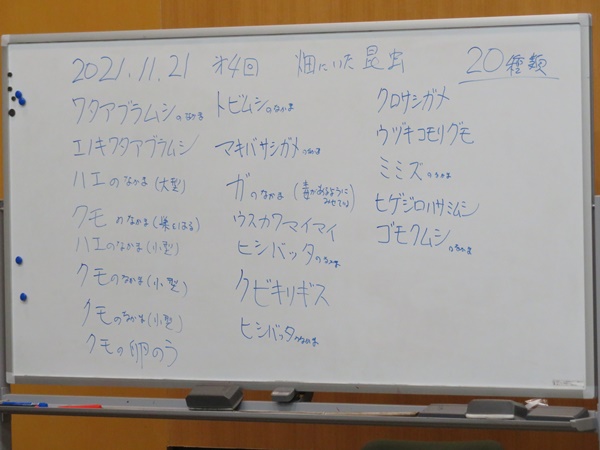 2021.11.21 オ4回 畑にいた昆虫 20種類
ワタアブラムシのなかま
エノキワタアブラムシ
ハエのなかま(大型)
クモのなかま(巣をはる)
ハエのなかま(小型)
クモのなかま(小型)
クモのなかま(小型)
クモの卵のう
トビムシのなかま
マキバサシガメのなかま
ガのなかま(毒があるようにみせている)
ウスカワマイマイ
ヒシバッタのなかま
クビキリギス
ヒシバッタのなかま
クロサシガメ
ウヅキコモリグモ
ミミズのなかま
ヒゲジロハサミムシ
ゴモクムシのなかま